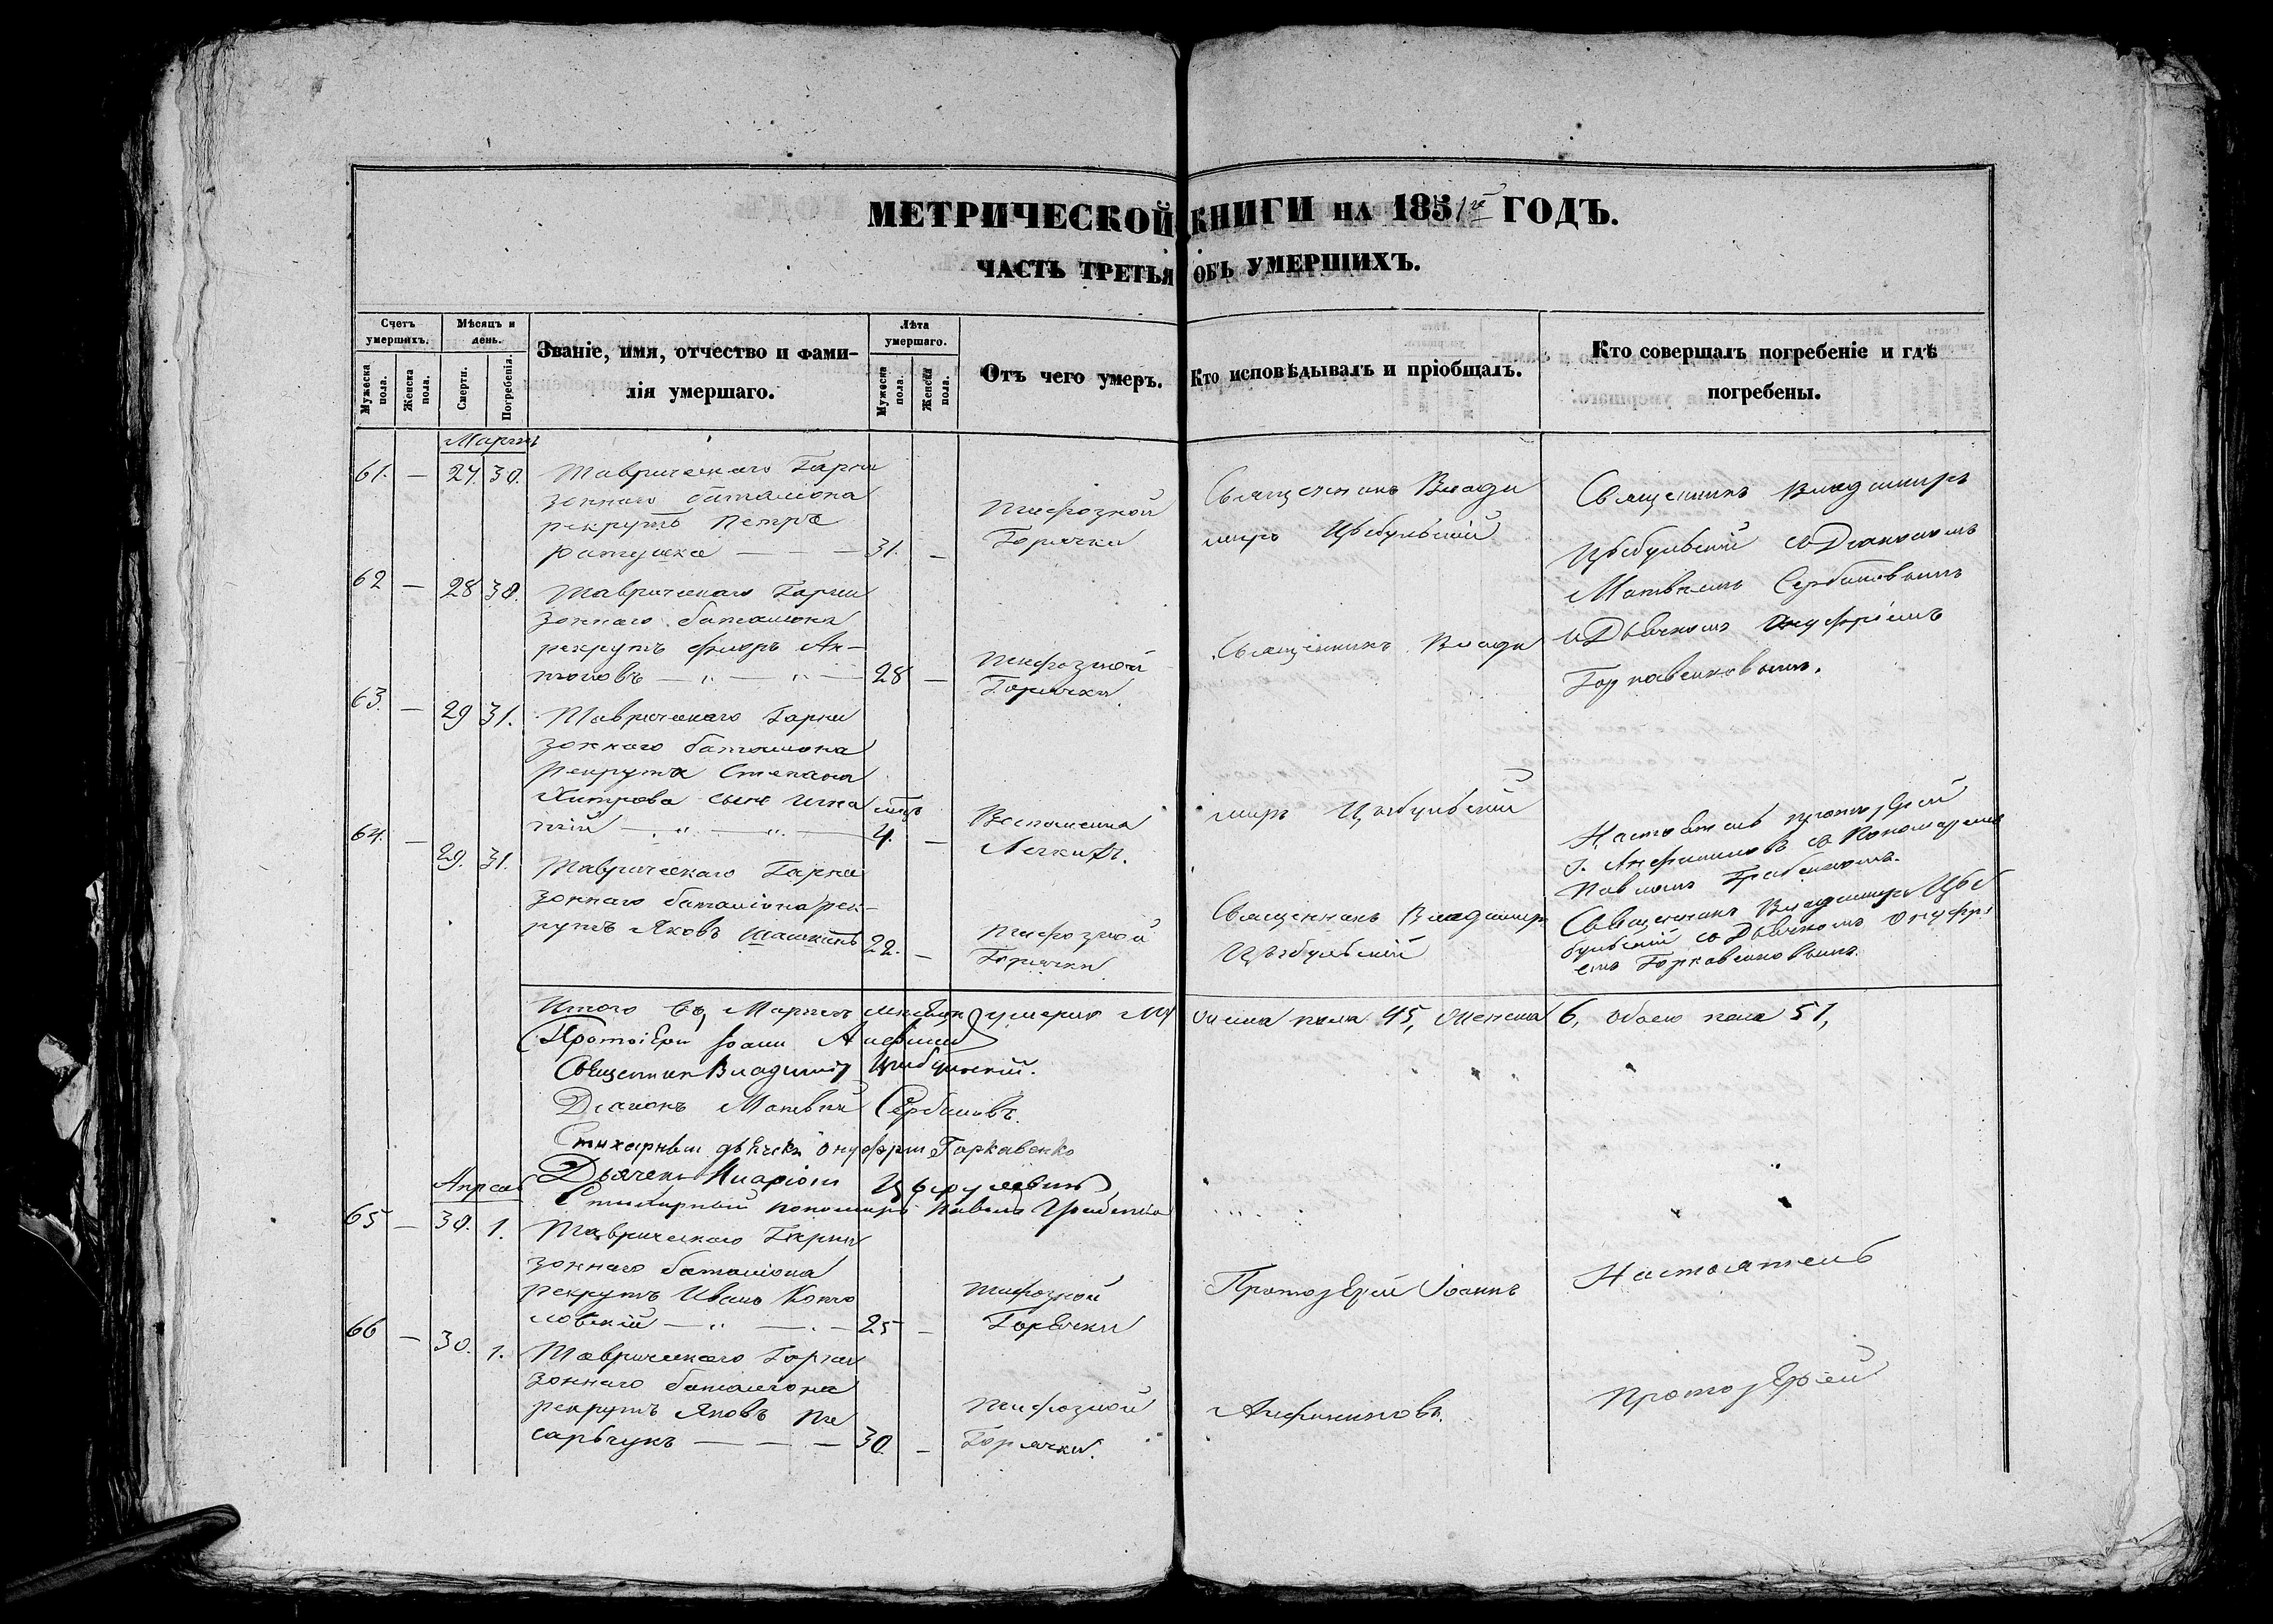 МЕТРИЧЕСКОЙ КНИГИ НА 1851й ГОДЪ.
ЧАСТЬ ТРЕТЬЯ ОБЪ УМЕРШИХЪ.
Счетъ умершихъ.
Мужеска пола.
Женска пола.
Мѣсяцъ и день.
Смерти.
Погребенія.
Званіе, имя, отчество и фами-
лія умершаго.
Лѣта умершаго.
Мужеска пола.
Женска пола.
Отъ чего умеръ.
Кто исповѣдывалъ и пріобщалъ.
Кто совершалъ погребеніе и гдѣ
погребены.
Мартъ
61. — 27. 30. Таврическаго Гарни
зоннаго баталіона
рекрутъ Петръ
— — — 31. —
Тифозной
Горячки
Священникъ Влади
миръ Цыбульскій
Священникъ Владимиръ
Цыбульскій со Диакономъ
Матвѣемъ Сербиновымъ
и Дьячкомъ Онуфріемъ
Горкавенковымъ.
62 — 28 30. Таврическаго Гарни
зоннаго баталіона
рекрутъ Флоръ Ан-
тоновъ — " — " — 28 —
Тифозной
Горячки
Священникъ Влади
миръ Цыбульскій
63. — 29 31. Таврическаго Гарни
зоннаго баталіона
рекрута Степана
Хитрова сынъ Игна
тій — " — " — мцъ 4. —
Воспаленія
Легкихъ.
Настоятель протоіерей
І. Анфиминовъ съ Пономаремъ
Павломъ Грабенкомъ.
64. — 29. 31. Таврическаго Гарни
зоннаго баталіона рек-
рутъ Яковъ Шашкинъ 22. —
Тифозной
Горячки
Священникъ Владимиръ
Цыбульскій
Священникъ Владимиръ Цыб
бульскій со Дьячкомъ Онуфрі
емъ Горкавенковымъ.
Итого въ Мартѣ мѣсяцѣ умерло му жеска пола 45, женска 6, обоего пола 51,
Протоіерей Іоаннъ
Священник Владимир Цыбульскій.
Диаконъ Матвѣй Сербиновъ.
Стихарный дьячекъ Онуфрій Горкавенко
Дьячекъ
Стихарный пономарь Павелъ Грабенко
Апрель
65 — 30. 1. Таврическаго Гарни
зоннаго баталіона
рекрутъ Иванъ
ловскій — " — — 25 —
Тифозной
Горячки
Протоіерей Іоаннъ
Настоятель
66 — 30. 1. Таврическаго Гарни
зоннаго баталіона
рекрутъ Яковъ Пи
сарьчукъ — — — 30. —
Тифозной
Горячки.
Анфиминовъ.
Протоіерей